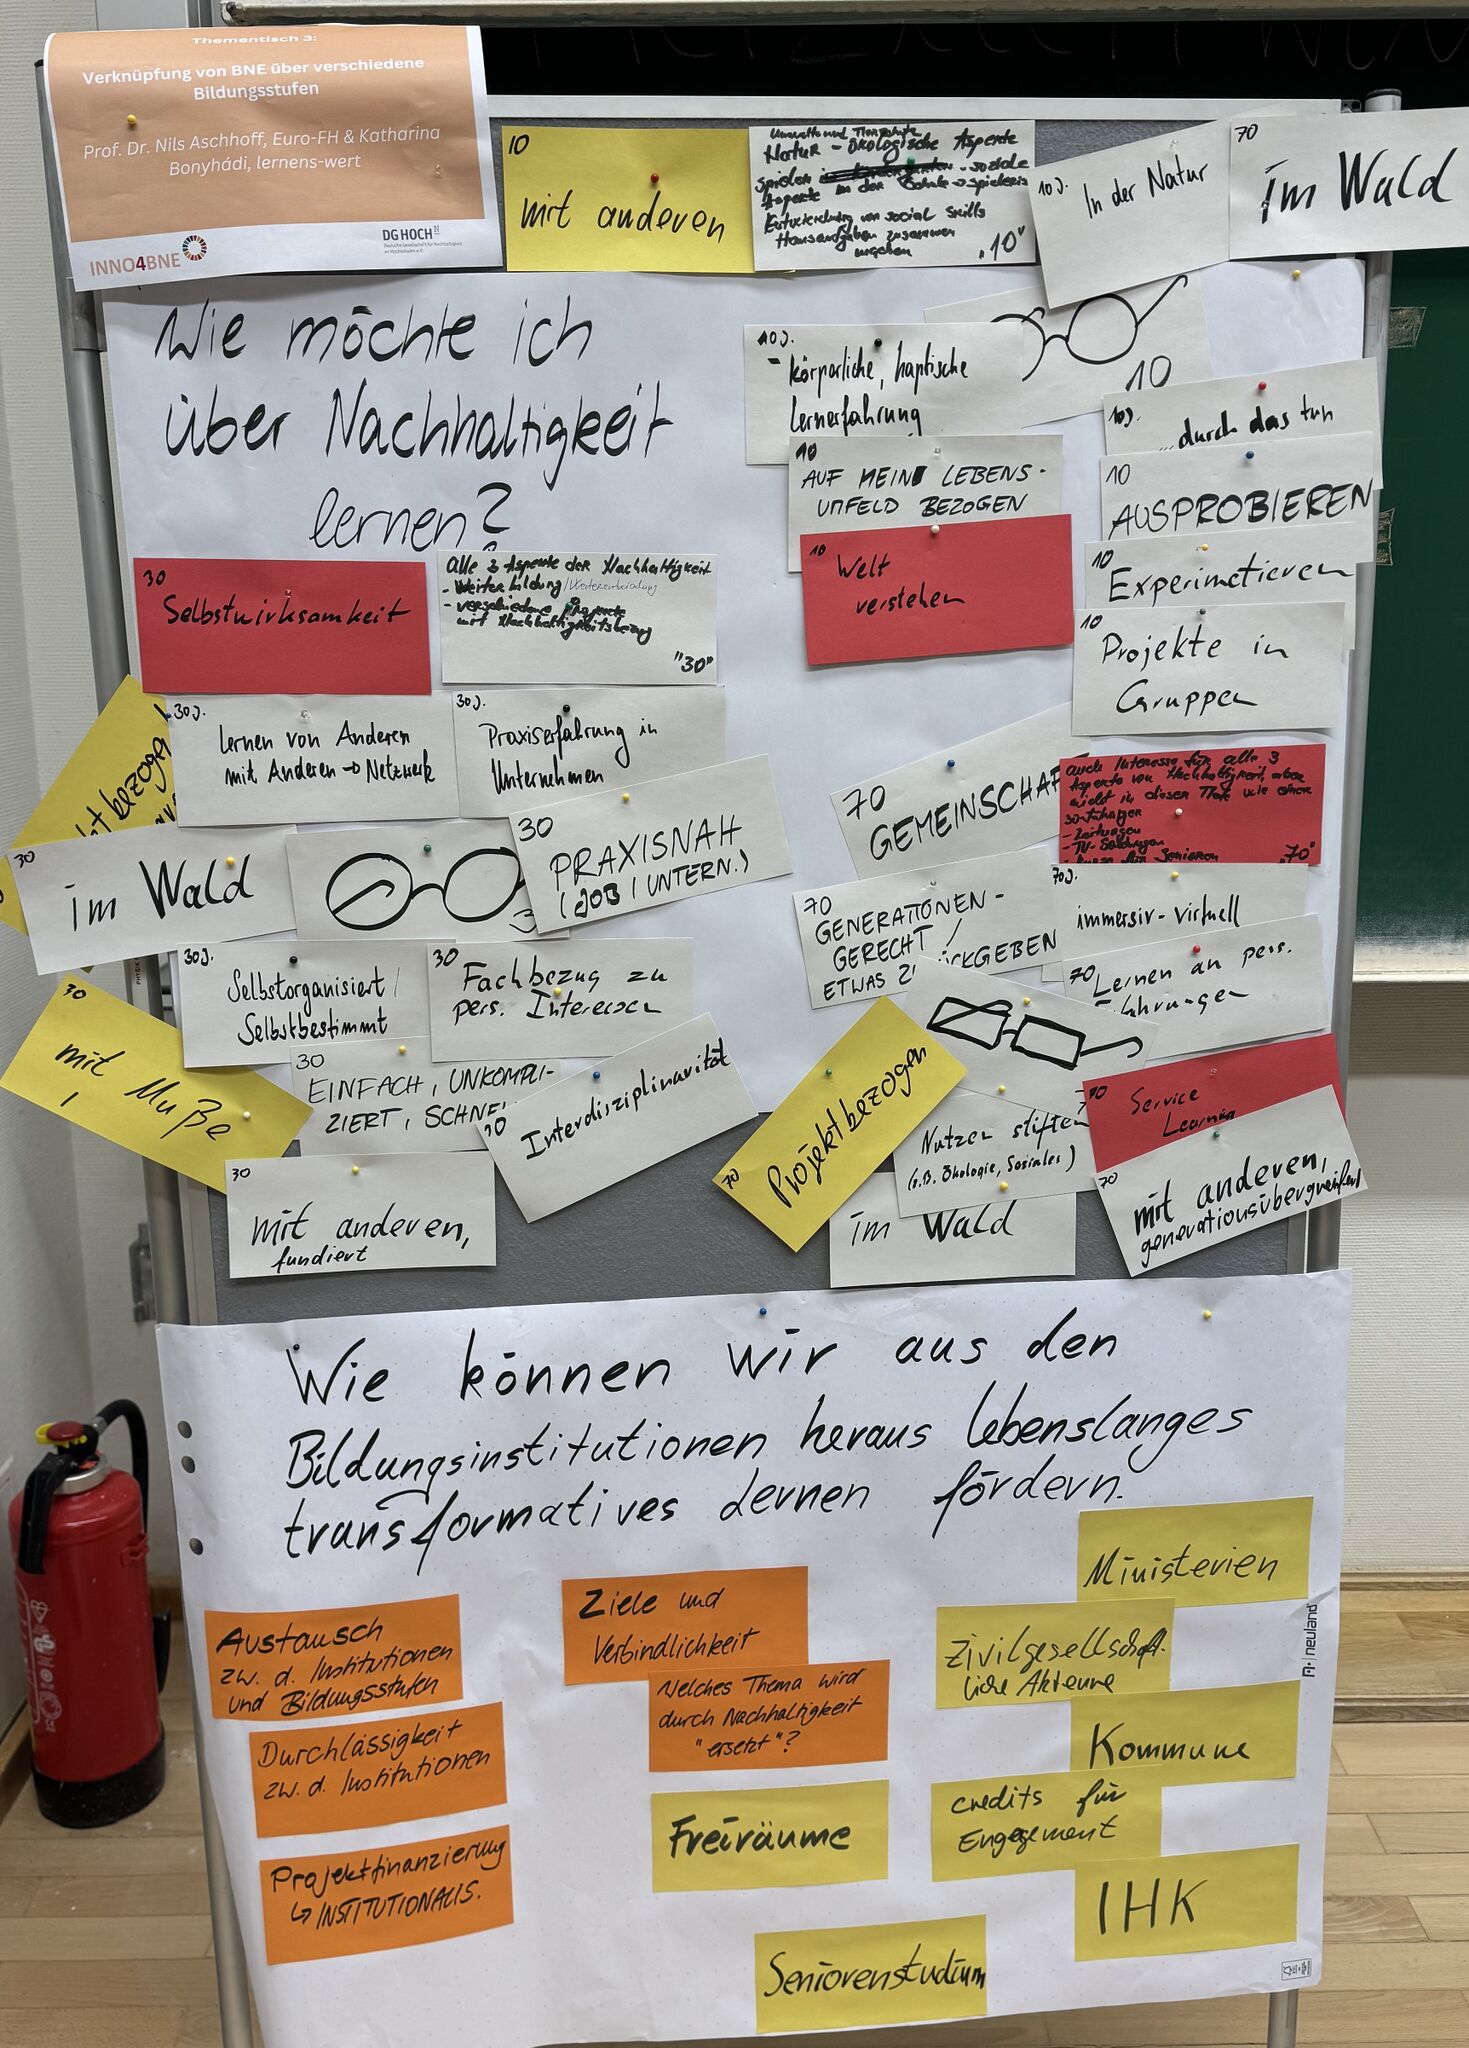 Thementisch 3:
Verknüpfung von BNE über verschiedene
Bildungsstufen
Prof. Dr. Nils Aschhoff, Euro-FH & Katharina
Bonyhádi, lernens-wert
INNO4BNE
DG HOCH N
10
mit anderen
Umwelt und Tierschutz
Natur - ökologische Aspekte
spielen soziale
Aspekte in der Schule → spielerisch
Entwicklung von social skills
Hausaufgaben zusammen
"10"
10J.
In der Natur
70
im Wald
Wie möchte ich
über Nachhaltigkeit
lernen?
10J.
- körperliche, haptische
Lernerfahrung
10
10J.
...durch das tun
10
AUF MEIN LEBENS-
UMFELD BEZOGEN
10
AUSPROBIEREN
10
Welt
verstehen
10
Experimetieren
10
Projekte in
Gruppen
30
Selbstwirksamkeit
Alle 3 Aspekte der Nachhaltigkeit
- Weiterbildung/Weiterentwicklung
- verschiedene Projekte
mit Nachhaltigkeitsbezug
"30"
30J.
Lernen von Anderen
mit Anderen → Netzwerk
30J.
Praxiserfahrung in
Unternehmen
30
PRAXISNAH
(JOB / UNTERN.)
30
im Wald
30J.
Selbstorganisiert /
Selbstbestimmt
30
Fachbezug zu
pers. Interessen
30
mit Muße
!
30
EINFACH, UNKOMPLI-
ZIERT, SCHNE
30
Interdisziplinarität
30
mit anderen,
fundiert
70
GEMEINSCHAF
auch Interesse für alle 3
Aspekte von Nachhaltigkeit, aber
nicht in dieser Tiefe wie einer
30-Jähriger
- Zeitungen
- TV-Sendungen
Senioren
"70"
70
GENERATIONEN-
GERECHT /
ETWAS ZU
CKGEBEN
70J.
immersiv-virtuell
70
Lernen an pers.
fahrungen
70
Projektbezogen
Nutzen stiften
(z.B. Ökologie, Soziales)
70
Service
Learning
im Wald
70
mit anderen,
generationsübergreifend
Wie können wir aus den
Bildungsinstitutionen heraus lebenslanges
transformatives Lernen fördern.
Austausch
zw. d. Institutionen
und Bildungsstufen
Durchlässigkeit
zw. d. Institutionen
Projektfinanzierung
↳ INSTITUTIONALIS.
Ziele und
Verbindlichkeit
Welches Thema wird
durch Nachhaltigkeit
"ersetzt"?
Freiräume
Seniorenstudium
Ministerien
Zivilgesellschaft-
liche Akteure
Kommune
credits für
Engagement
IHK
neuland